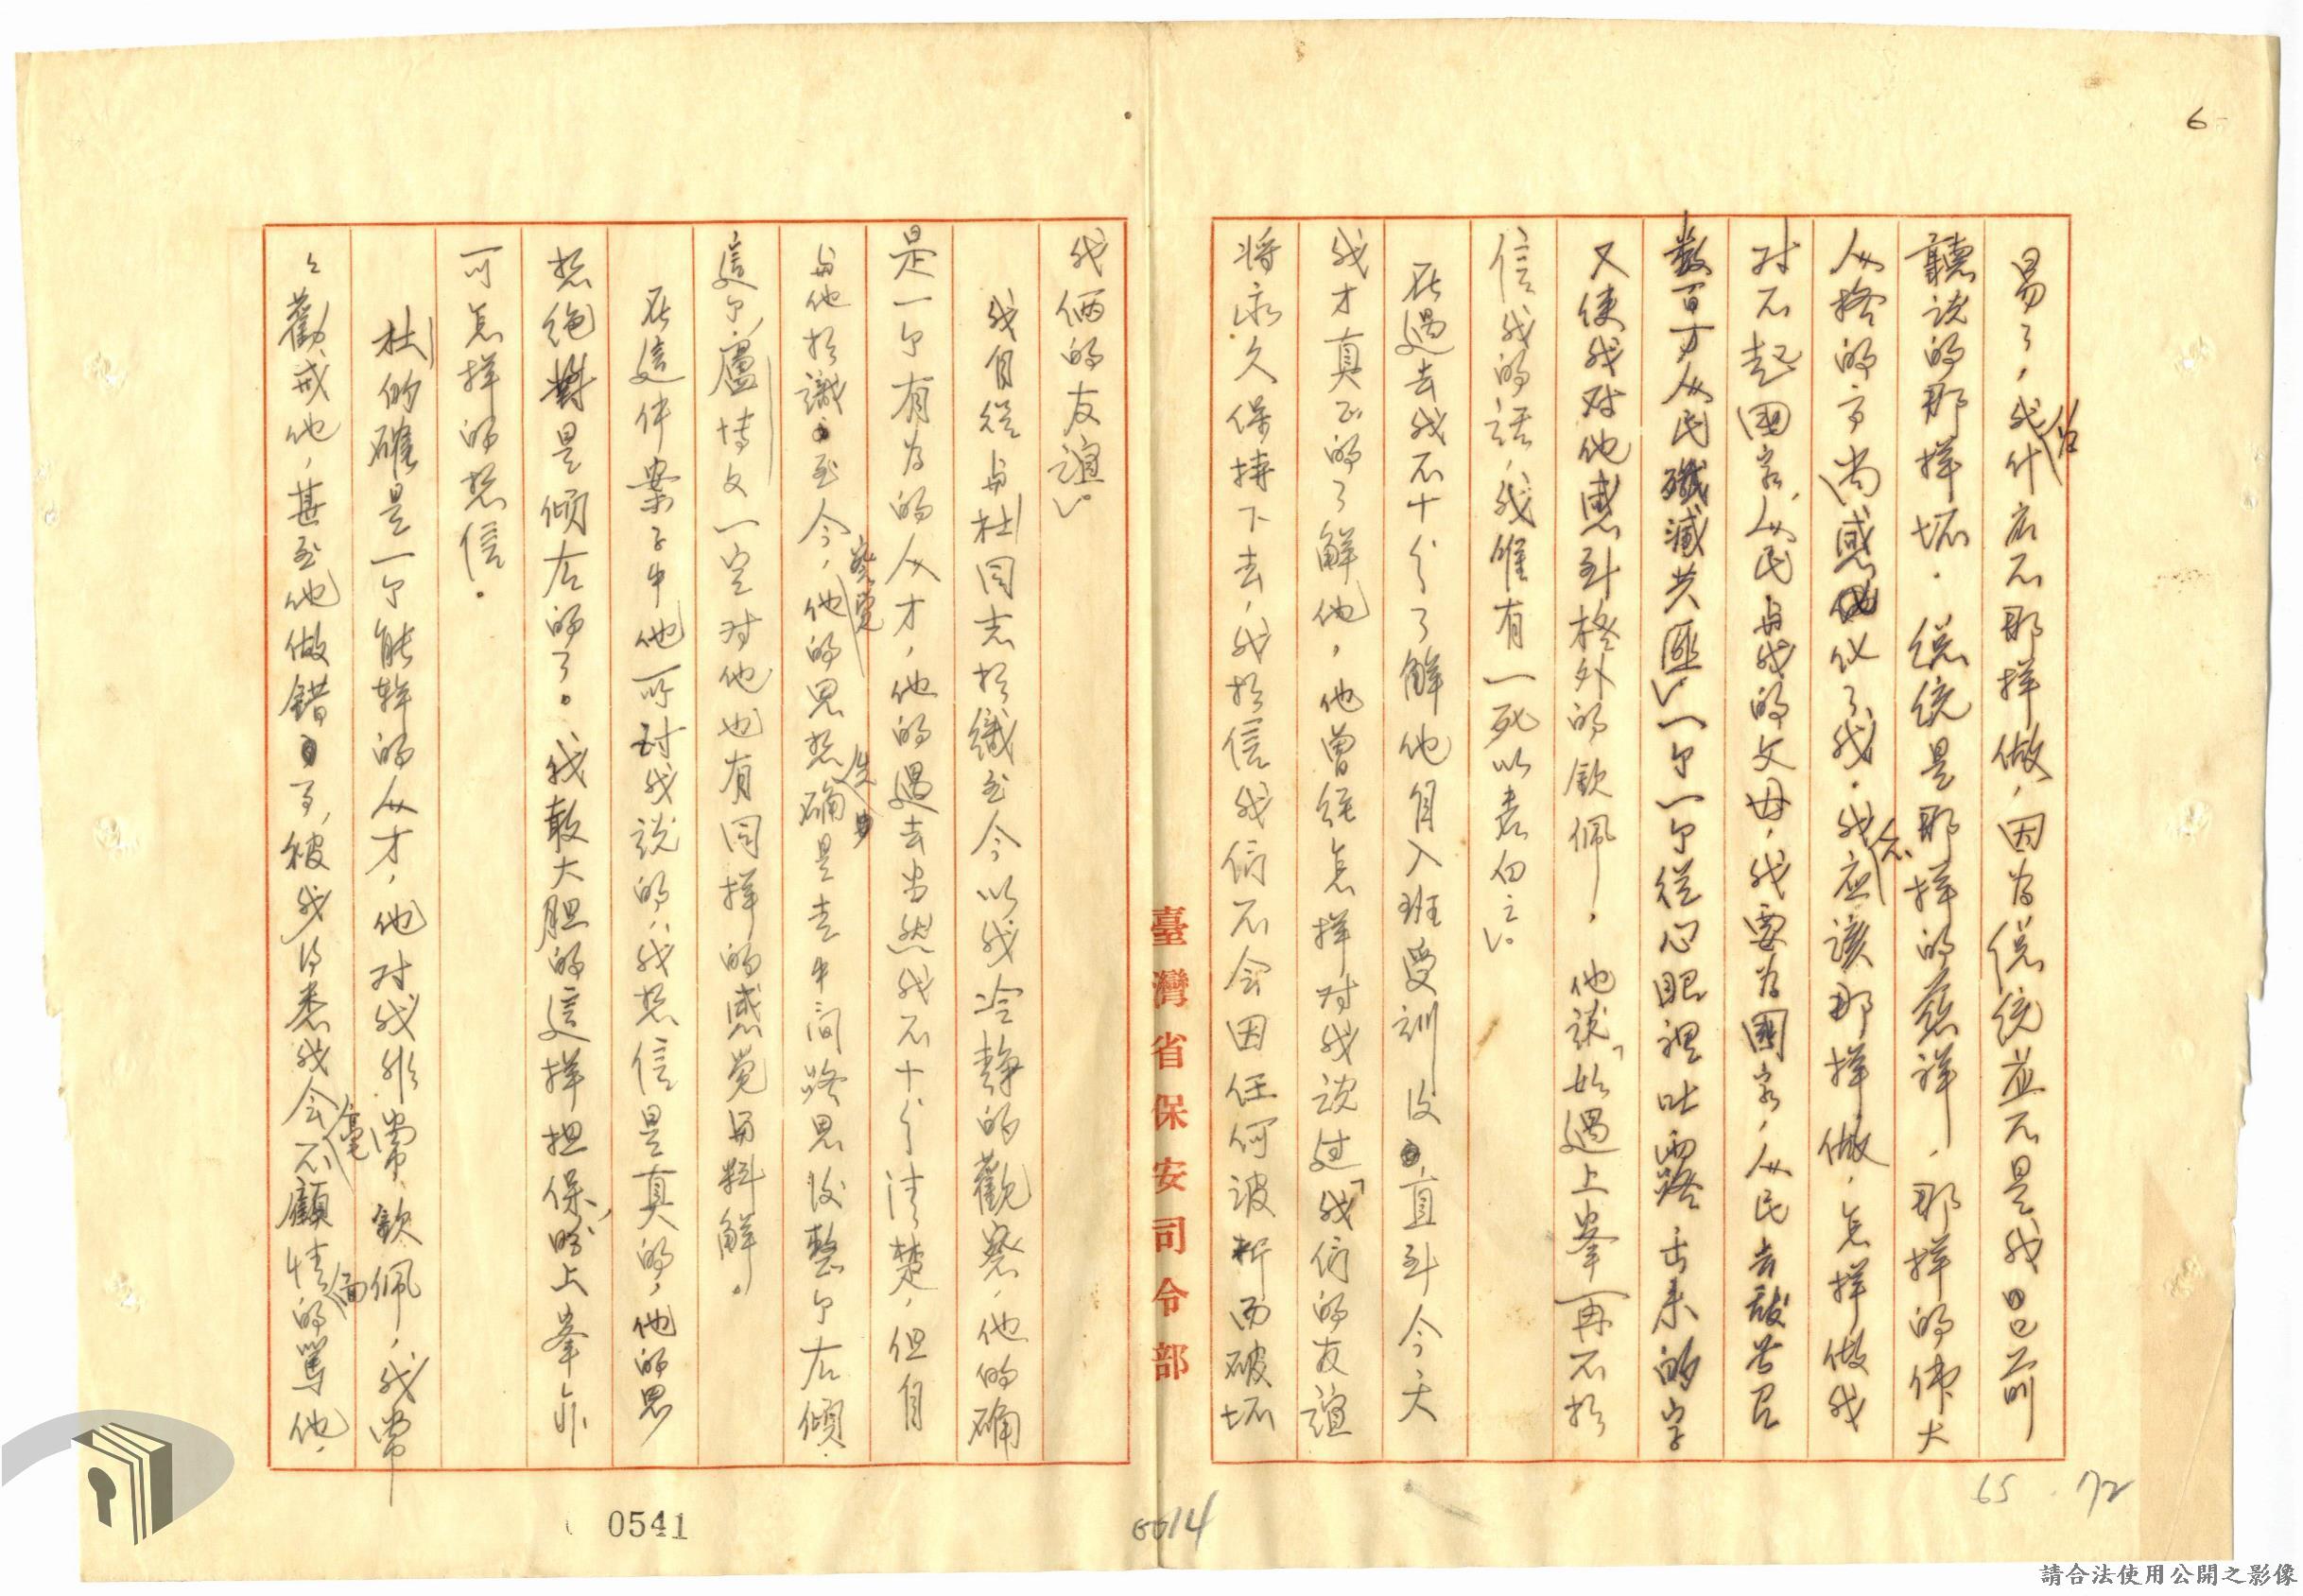 6
易了，我什広不那样做，因为总統並不是我日日前
聽说的那样坏．总統是那样的慈祥，那样的偉大
人格的高尚感化了我．我不应該那样做，怎样做我
对不起國家，人民与我的父母，我要为國家，人民去
数百万人民殲滅共匪」一个一个從心眼裡吐露出来的字
又使我对他感到格外的欽佩，他説「如遇上峯再不相
信我的話，我唯有一死以表白之」。
在過去我不十分了解他自入班受訓後直到今天
我才真正的了解他，他曾經怎样对我说过「我们的友誼
将永久保持下去，我相信我们不会因任何波折而破坏
我俩的友誼」。
我自從与杜同志相識至今以我冷静的觀察，他的确
是一个有为的人才，他的過去当然我不十分清楚，但自
与他相識至今，察覺他的思想确是走中间路思没整个左傾．
這个盧博文一定对他也有同样的感覺与料解．
在這件案子中他所对我説的，我想信是真的，他的思
想絕对是傾左的了。我敢大胆的這样担保，盼上峯亦
可怎样的想信．
杜的確是一个能幹的人才，他对我非常欽佩，我常
々勸戒他，甚至他做錯了，被我得悉我会毫不顧情面的罵他．
臺灣省保安司令部
65
72
0541
0014
請合法使用公開之影像